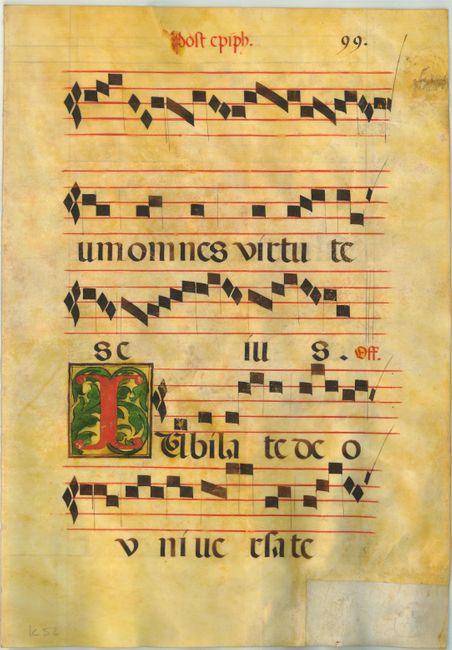 Post epiph. 99.
um omnes virtu te
s e iu s. Off.
IUbila te de o
v ni ue rsa te
K 52